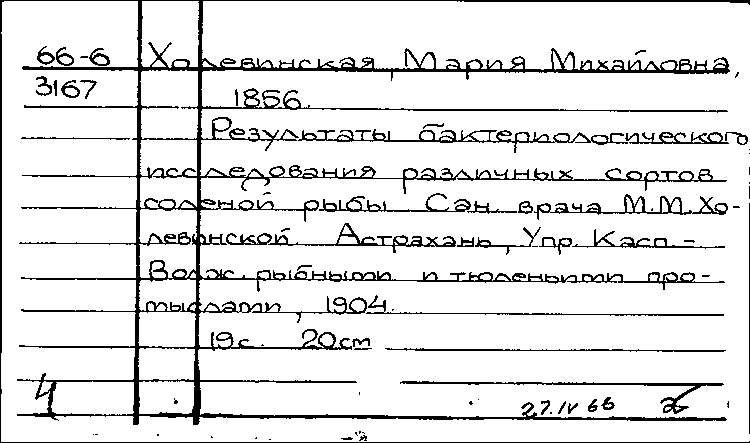 66-6 Холевинская, Мария Михайловна,
3167 1856.
Результаты бактериологического
исследования различных сортов
соленой рыбы Сан. врача М.М. Хо-
левинской. Астрахань, Упр. Касп.-
Волж. рыбными и тюленьими про-
мыслами, 1904.
19с. 20см
4 27.IV 66